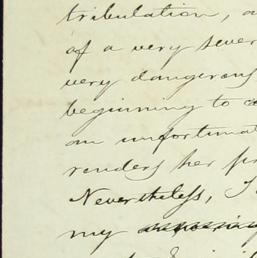 tribulation, a
of a very sever
very dangerous
beginning to
an unfortunat
renders her pr
Nevertheless, I
my